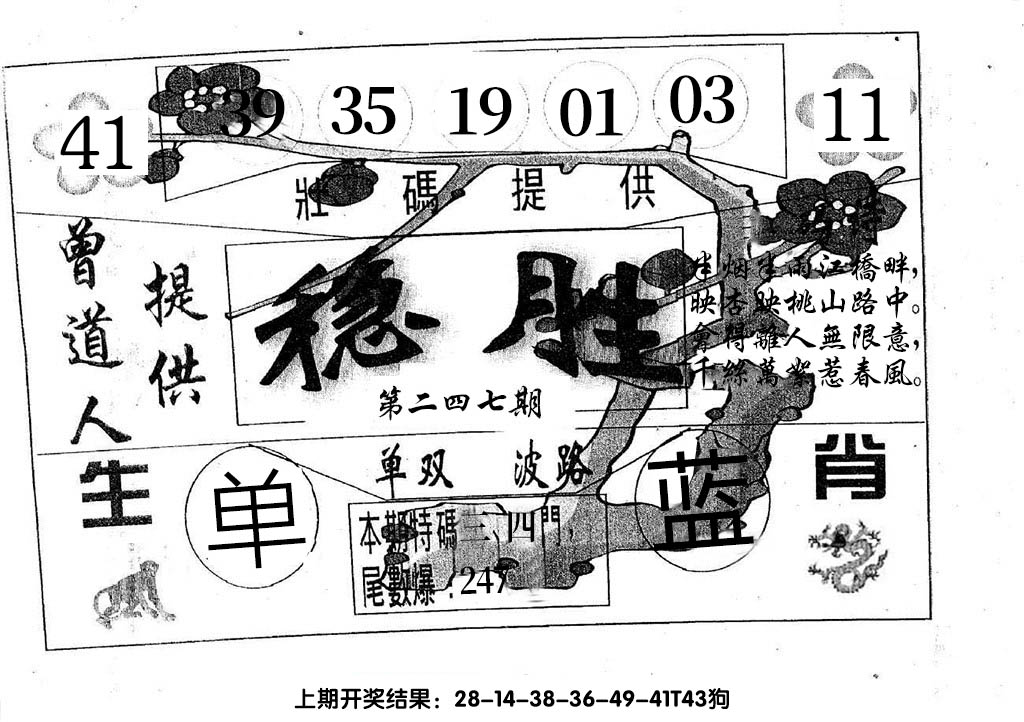 41 39 35 19 01 03 11
壯碼提供
特
曾道人
提供
稳胜
第二四七期
烟生雨江橋畔，
映杏映桃山路中。
會得離人無限意，
千絲萬絮惹春風。
单双 波路
生肖
单
蓝
本期特碼三、四門，
尾數爆：247
上期开奖结果：28-14-38-36-49-41T43狗